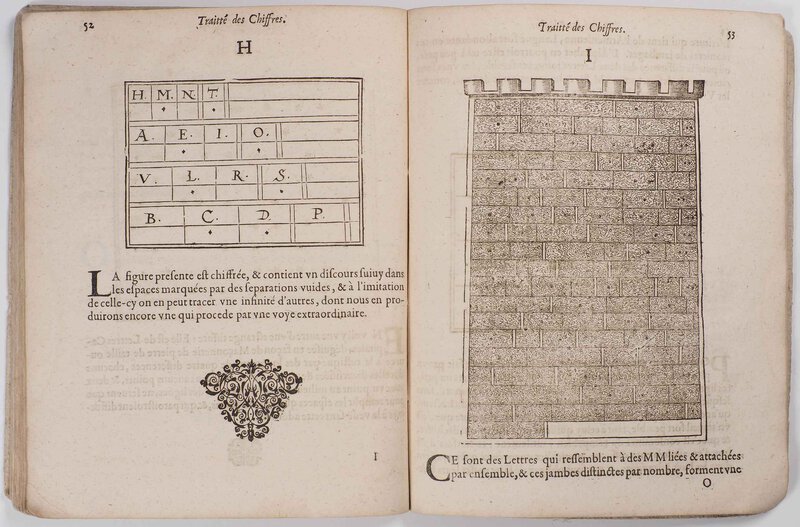 52
Traitté des Chiffres.
H
H. M. N. T.
A. E. I. O.
V. L. R. S.
B. C. D. P.
LA figure presente est chiffrée, & contient vn discours suiuy dans
les espaces marquées par des separations vuides, & à l'imitation
de celle-cy on en peut tracer vne infinité d'autres, dont nous en pro-
duirons encore vne qui procede par vne voye extraordinaire.
I
Traitté des Chiffres.
53
I
CE sont des Lettres qui ressemblent à des M M liées & attachées
par ensemble, & ces jambes distinctes par nombre, forment vne
O